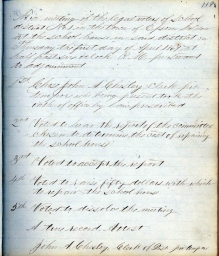 At a meeting of the legal voters of School
District No. in the town of Epsom holden
at the school house in said district on
Tuesday the first day of April
half past six o'clock P.M. pursuant
to adjournment
1st Chose John A Chesley Clerk pro
tempore who being first took the
oath of office by law prescribed
2nd Voted to hear the report of the committee
chosen to determine the cost of repairing
the school house
3rd Voted to accept the report
4th Voted to raise fifty dollars with which
to repair the school house
5th Voted to dissolve the meeting
A true record Attest
John A Chesley Clerk of Dis pro tempore